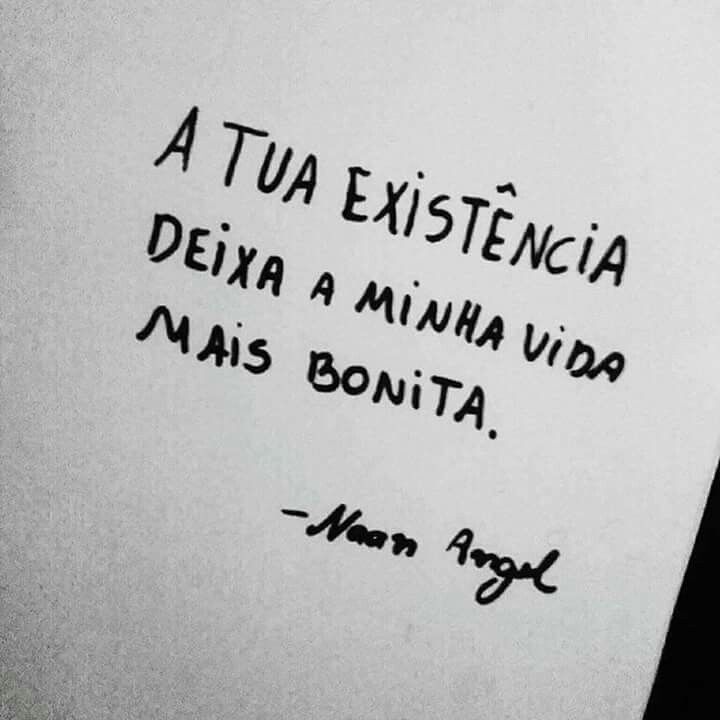 A TUA EXISTÊNCIA
DEIXA A MINHA VIDA
MAIS BONITA.
-Naan Angel